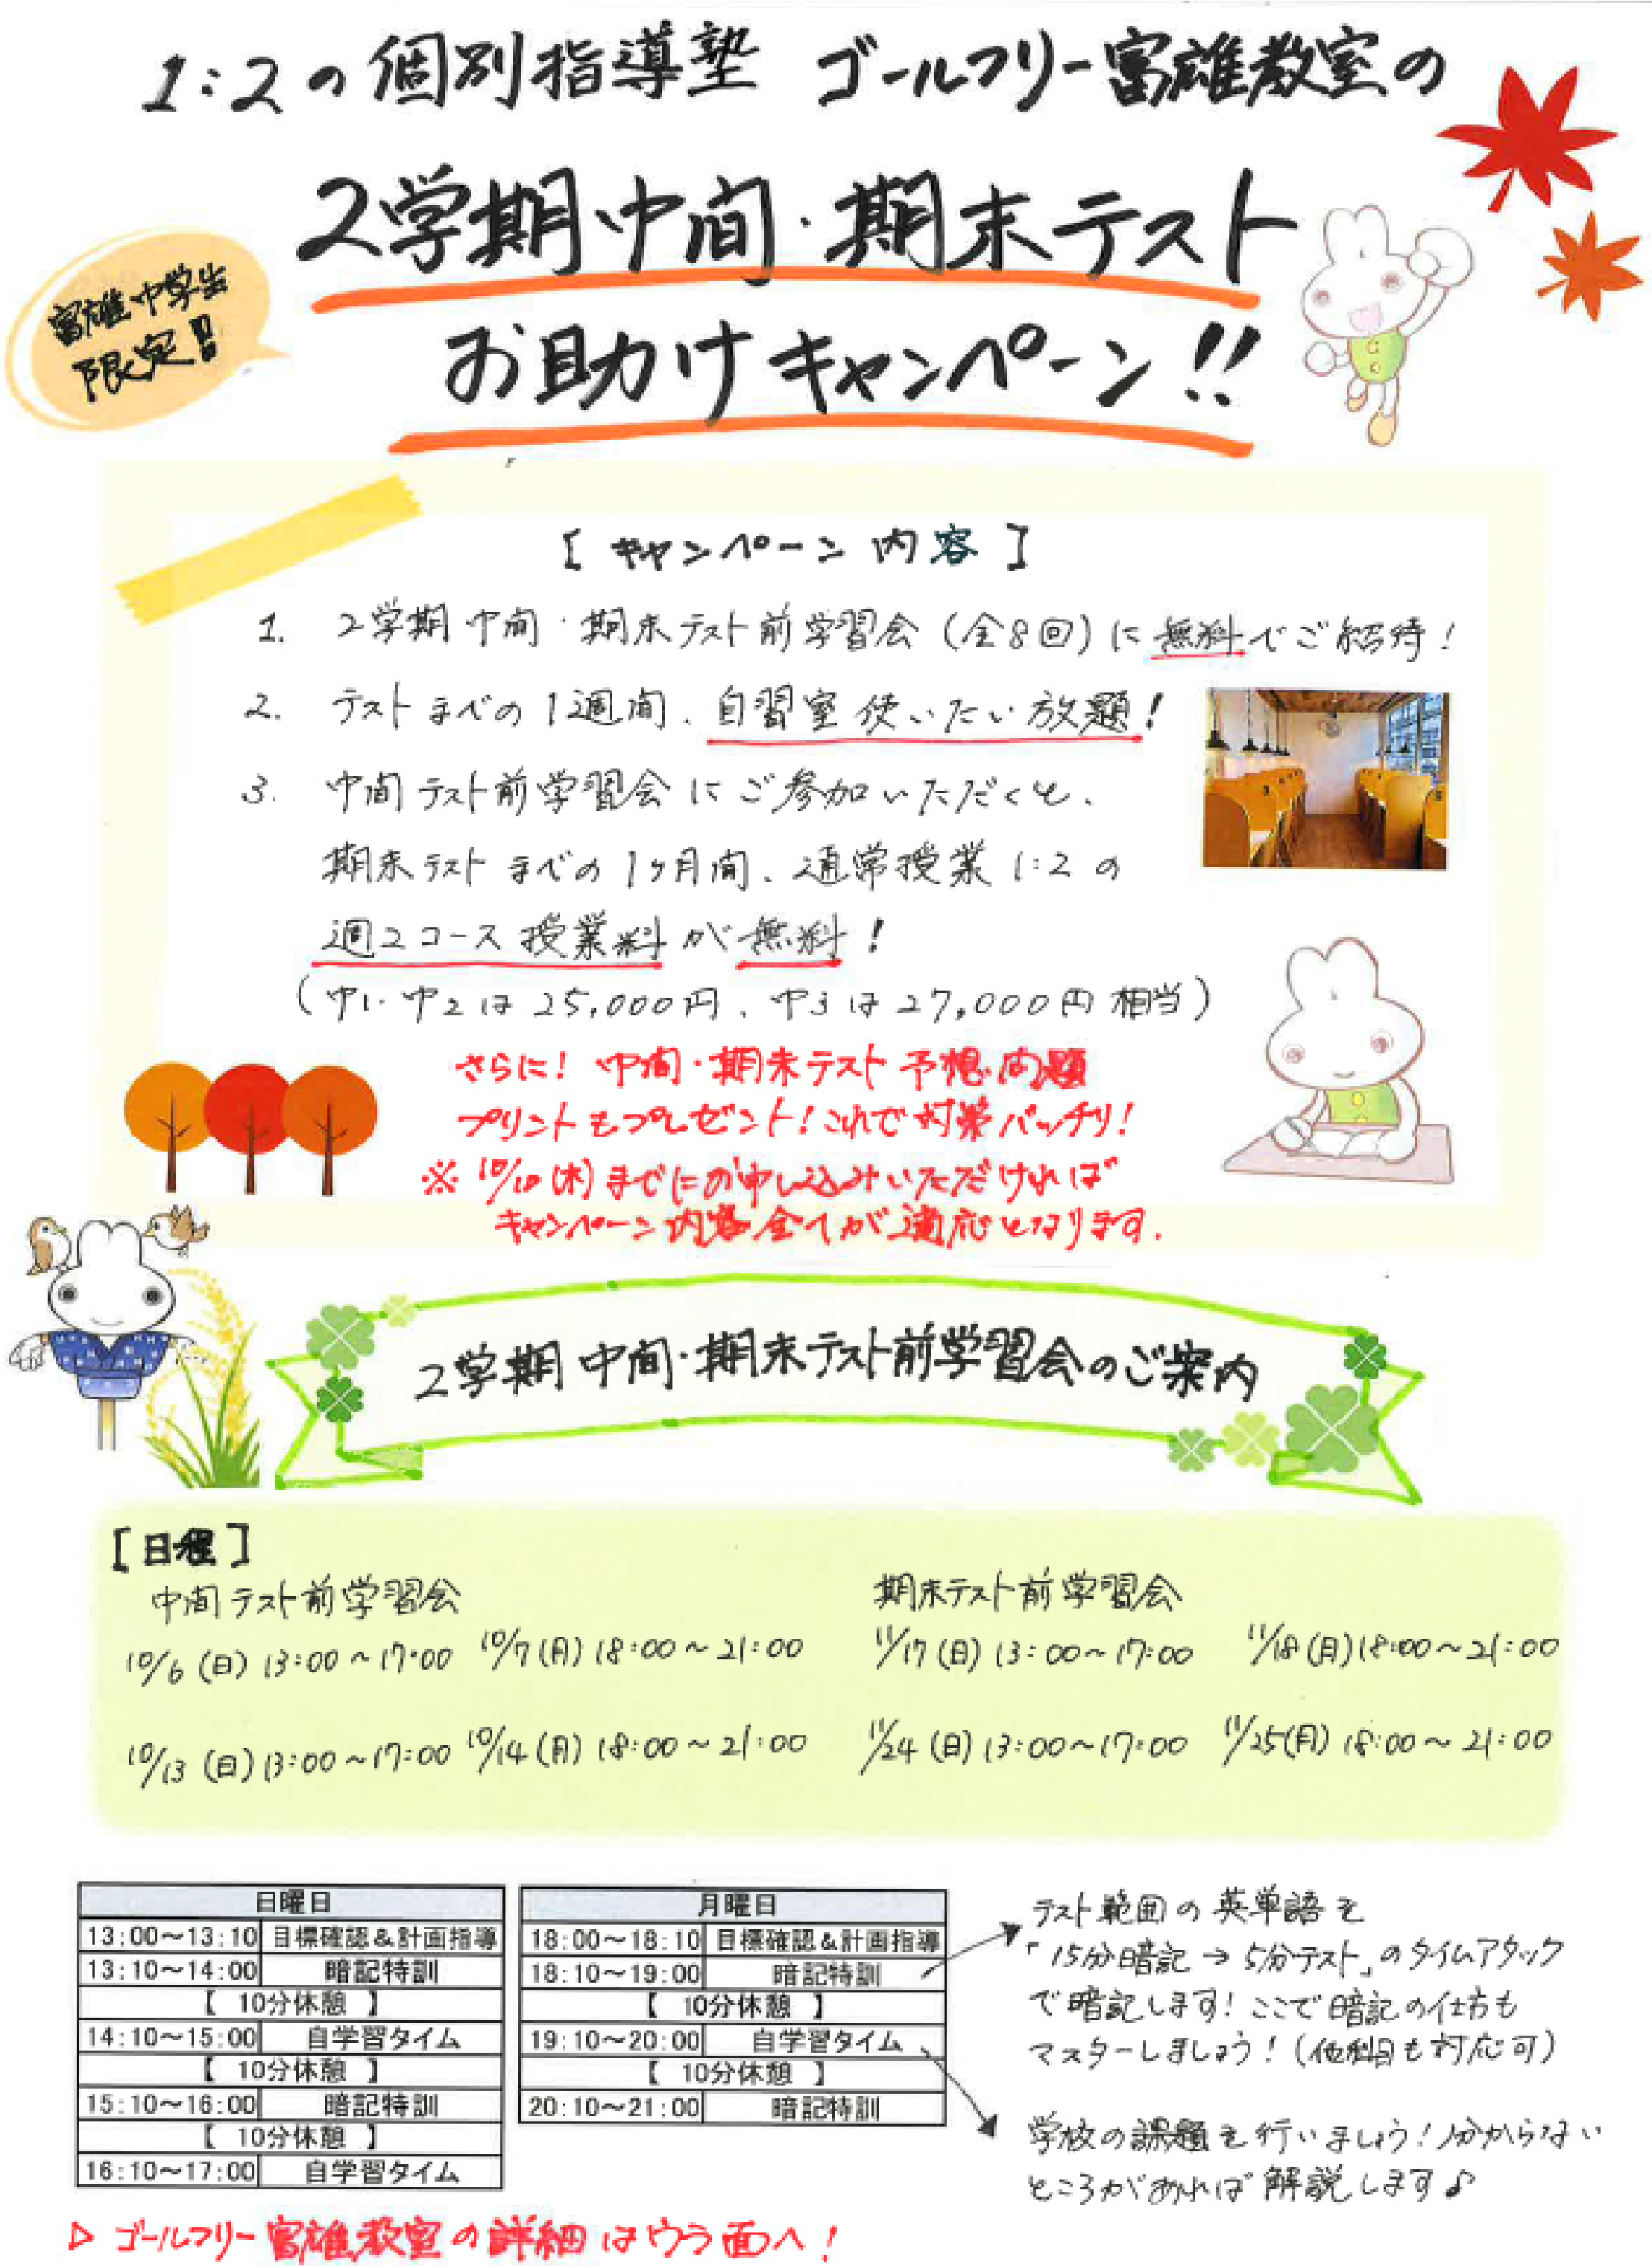 1:2の個別指導塾 ゴールフリー富雄教室の
2学期中間・期末テスト
お助けキャンペーン!!
富雄中学生
限定!!
[キャンペーン内容]
1. 2学期中間・期末テスト前学習会(全8回)に無料でご招待!
2. テストまでの1週間、自習室使いたい放題!
3. 中間テスト前学習会にご参加いただくと、
期末テストまでの1ヶ月間、通常授業1:2の
週2コース授業料が無料!
(中1・中2は25,000円、中3は27,000円相当)
さらに!中間・期末テスト予想問題
プリントもプレゼント!これで対策バッチリ!
※10/10(木)までにお申し込みいただければ
キャンペーン内容全てが適応となります.
2学期中間・期末テスト前学習会のご案内
[日程]
中間テスト前学習会
10/6(日)13:00~17:00 10/7(月)18:00~21:00
10/13(日)13:00~17:00 10/14(月)18:00~21:00
期末テスト前学習会
11/17(日)13:00~17:00 11/18(月)18:00~21:00
11/24(日)13:00~17:00 11/25(月)18:00~21:00
日曜日
13:00~13:10 目標確認&計画指導
13:10~14:00 暗記特訓
【 10分休憩 】
14:10~15:00 自学習タイム
【 10分休憩 】
15:10~16:00 暗記特訓
【 10分休憩 】
16:10~17:00 自学習タイム
月曜日
18:00~18:10 目標確認&計画指導
18:10~19:00 暗記特訓
【 10分休憩 】
19:10~20:00 自学習タイム
【 10分休憩 】
20:10~21:00 暗記特訓
テスト範囲の英単語を
「15分暗記→5分テスト」のタイムアタック
で暗記します!ここで暗記の仕方も
マスターしましょう!(他科目も対応可)
学校の課題を行いましょう!分からない
ところがあれば解説します♪
▷ゴールフリー富雄教室の詳細はウラ面へ!